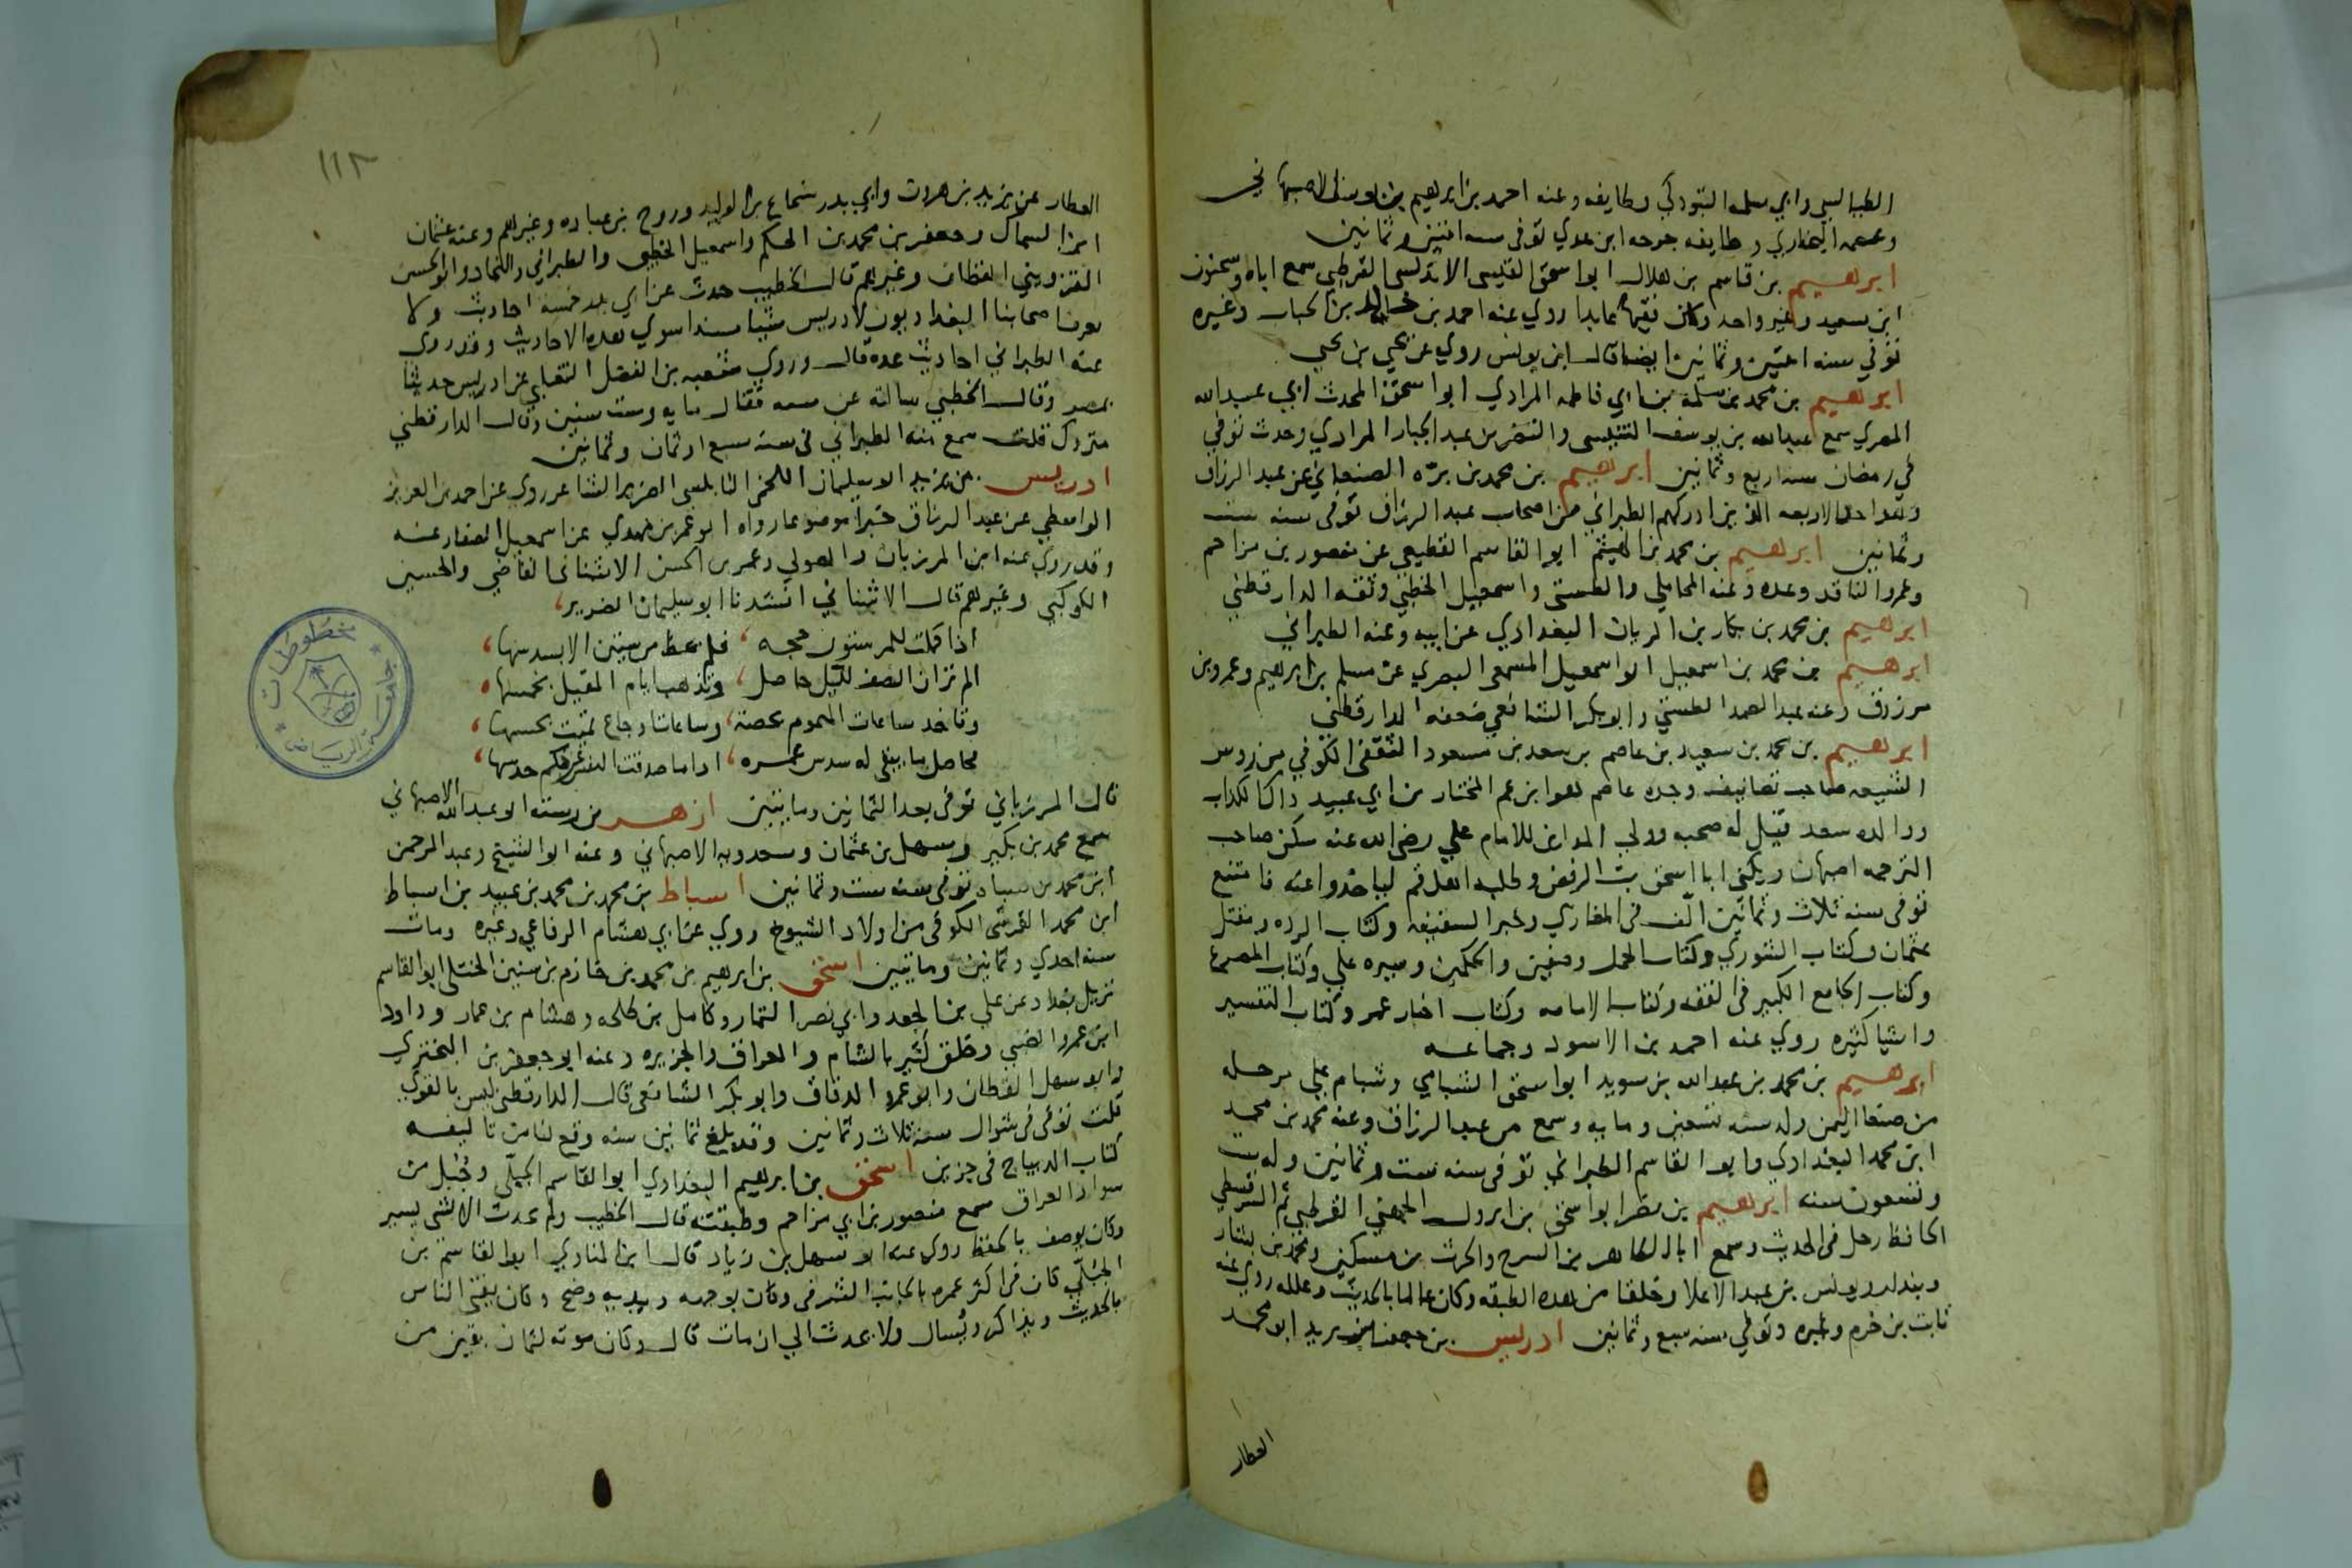 الطيالسي وابي سلمه التبوذكي وطايفه وعنه احمد بن ابرهيم بن يوسف الاصبهاني
وعصمه البخاري وطايفه جرحه ابن عدي توفي سنه اثنين وثمانين
ابرهيم بن قاسم بن هلال ابو اسحق القيسي الاندلسي القرطبي سمع اباه وسحنون
ابن سعيد وغير واحد وكان فقيها عابدا روي عنه احمد بن خالد بن الحباب وغيره
توفي سنه اثنين وثمانين ايضا قال ابن يونس روي عن يحي بن يحي
ابرهيم بن محمد بن سلمة بن ابي فاطمه المرادي ابو اسحق المحدث ابي عبد الله
المصري سمع عبد الله بن يوسف التنيسي والنضر بن عبد الجبار المرادي وحدث توفي
في رمضان سنه اربع وثمانين ابرهيم بن محمد بن برّه الصنعاني عن عبد الرزاق
وهو احد الاربعه الذين ادركهم الطبراني من اصحاب عبد الرزاق توفي سنه ست
وثمانين ابرهيم بن محمد بن الهيثم ابو القاسم القطيعي عن منصور بن مزاحم
وعمرو الناقد وعده وعنه المحاملي والطستي واسمعيل الخطبي وثقه الدارقطني
ابرهيم بن محمد بن بكار بن الريان البغدادي عن ابيه وعنه الطبراني
ابرهيم بن محمد بن اسمعيل ابو اسمعيل المسمعي البصري عن مسلم بن ابرهيم وعمرو بن
مرزوق وعنه عبد الصمد الطستي وابو بكر الشافعي ضعفه الدارقطني
ابرهيم بن محمد بن سعيد بن عاصم بن سعد بن مسعود الثقفي الكوفي من روس
الشيعه صاحب تصانيف وجده عاصم هو ابن عم المختار بن ابي عبيد ذاك الكذاب
ووالده سعد قيل له صحبه وولي المداين للامام علي رضي الله عنه سكن صاحب
الترجمه اصبهان ويكنى ابا اسحق بث الرفض وطلبه اهل قم لياخذوا عنه فامتنع
توفي سنه ثلاث وثمانين الّف في المغازي وخبر السقيفه وكتاب الرده ومقتل
عثمان وكتاب الشوري وكتاب الجمل وصفين والحكمين وسيره علي وكتاب المصرع
وكتاب الجامع الكبير في الفقه وكتاب الامامه وكتاب اخبار عمر وكتاب التفسير
واشيا كثيره روي عنه احمد بن الاسود وجماعه
ابرهيم بن محمد بن عبد الله بن سويد ابو اسحق الشبامي وشبام علي مرحله
من صنعا اليمن ولد سنه تسعين ومايه وسمع من عبد الرزاق وعنه محمد بن محمد
ابن محمد البغدادي وابو القاسم الطبراني توفي سنه ست وثمانين وله ست
وتسعون سنه ابرهيم بن نصر ابو اسحق بن ابرول الجهني القرطبي ثم السرقسطي
الحافظ رحل في الحديث وسمع ابا الطاهر بن السرح والحرث بن مسكين ومحمد بن بشار
وبندار ويونس بن عبد الاعلا وخلقا من هذه الطبقه وكان عالما بالحديث وعلله روي عنه
ثابت بن حزم وغيره وتوفي سنه سبع وثمانين ادريس بن جعفر بن يزيد ابو محمد
العطار
١١٢
العطار عن يزيد بن هرون وابي بدر شجاع بن الوليد وروح بن عباده وغيرهم وعنه عثمان
ابن السماك وجعفر بن محمد بن الحكم واسمعيل الخطبي والطبراني والنجاد وابو الحسن
القزويني القطان وغيرهم قال الخطيب حدث عن ابي بدر خمسه احاديث ولا
يعرف اصحابنا البغداديون لادريس شيا مسندا سوي هذه الاحاديث وقد روي
عنه الطبراني احاديث عده قال وروي عتبه بن الفضل الثعلبي عن ادريس حديثا
بمصر وقال الخطبي سالته عن سنه فقال مايه وست سنين وقال الدارقطني
متروك قلت سمع منه الطبراني في سنه سبع او ثمان وثمانين
ادريس بن يزيد ابو سليمان اللخمي النابلسي الضرير الشاعر روي عن احمد بن العزيز
الواسطي عن عبد الرزاق خبرا موضوعا رواه ابو عمر بن مهدي عن اسمعيل الصفار عنه
وقد روي عنه ابن المرزبان والصولي وعمر بن الحسن الاشناني القاضي والحسين
الكوكبي وغيرهم قال الاشناني انشدنا ابو سليمان الضرير
اذا كملت للمر ستون حجه فلم يحظ من ستين الا بسدسها
الم تر ان النصف لليل حاصل وتذهب ايام المقيل بخمسها
وتاخذ ساعات الهموم بحصة وساعات اوجاع تميت بحسها
فحاصل ما يبقى له سدس عمره اذا ما صدقت النفس عن حكم حدسها
قال المرزباني توفي بعد الثمانين ومايتين ازهر بن رسته ابو عبد الله الاصبهاني
سمع محمد بن بكير وسهل بن عثمان وسعدويه الاصبهاني وعنه ابو الشيخ وعبد الرحمن
ابن محمد بن سياه توفي سنه ست وثمانين اسباط بن محمد بن محمد بن عبيد بن اسباط
ابن محمد القرشي الكوفي من اولاد الشيوخ روي عن ابي هشام الرفاعي وغيره ومات
سنه احدي وثمانين ومايتين اسحق بن ابرهيم بن محمد بن خازم بن سنين الختلي ابو القاسم
نزيل بغداد عن علي بن الجعد وابي نصر التمار وكامل بن طلحه وهشام بن عمار وداود
ابن عمرو الضبي وخلق كثير بالشام والعراق والجزيره وعنه ابو جعفر بن البختري
وابو سهل القطان وابو عمرو الدقاق وابو بكر الشافعي قال الدارقطني ليس بالقوي
قلت توفي في شوال سنه ثلاث وثمانين وقد بلغ ثمانين سنه وقع لنا من تاليفه
كتاب الديباج في جزين اسحق بن ابرهيم البغدادي ابو القاسم الجبلي وجُبّل من
سواد العراق سمع منصور بن ابي مزاحم وطبقته قال الخطيب ولم يحدث الا بشي يسير
وكان يوصف بالحفظ روي عنه ابو سهل بن زياد قال ابن المنادي ابو القاسم بن
الجبلي كان في اكثر عمره بالجانب الشرقي وكان بوجهه ويديه وضح وكان يفتي الناس
بالحديث ويذاكر ويُسال ولا يحدث الي ان مات قال وكان موته لثمان بقين من
مخطوطات
جامعة الرياض